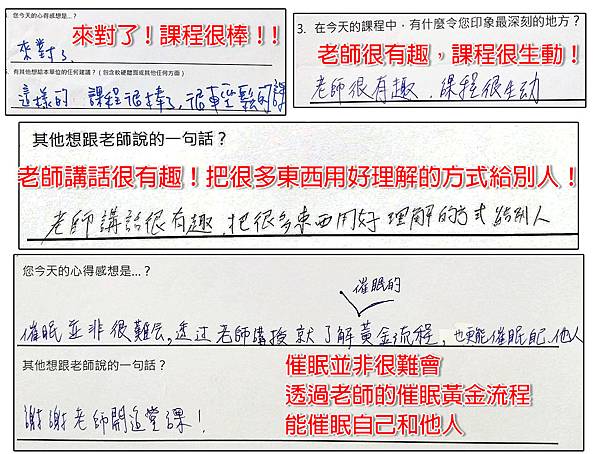 您今天的心得感想是...？
來對了！課程很棒！！
來對了
有其他想給本單位的任何建議？（包含軟硬體面或其他任何方面）
這樣的 課程很棒了，很輕鬆的課
3. 在今天的課程中，有什麼令您印象最深刻的地方？
老師很有趣，課程很生動！
老師很有趣，課程很生動
其他想跟老師說的一句話？
老師講話很有趣！把很多東西用好理解的方式給別人！
老師講話很有趣，把很多東西用好理解的方式給別人
您今天的心得感想是...？
催眠的
催眠並非很難會，透过老師講授就了解黃金流程，也更能催眠自己、他人
其他想跟老師說的一句話？
催眠並非很難會
透過老師的催眠黃金流程
能催眠自己和他人
謝謝老師開這堂課！